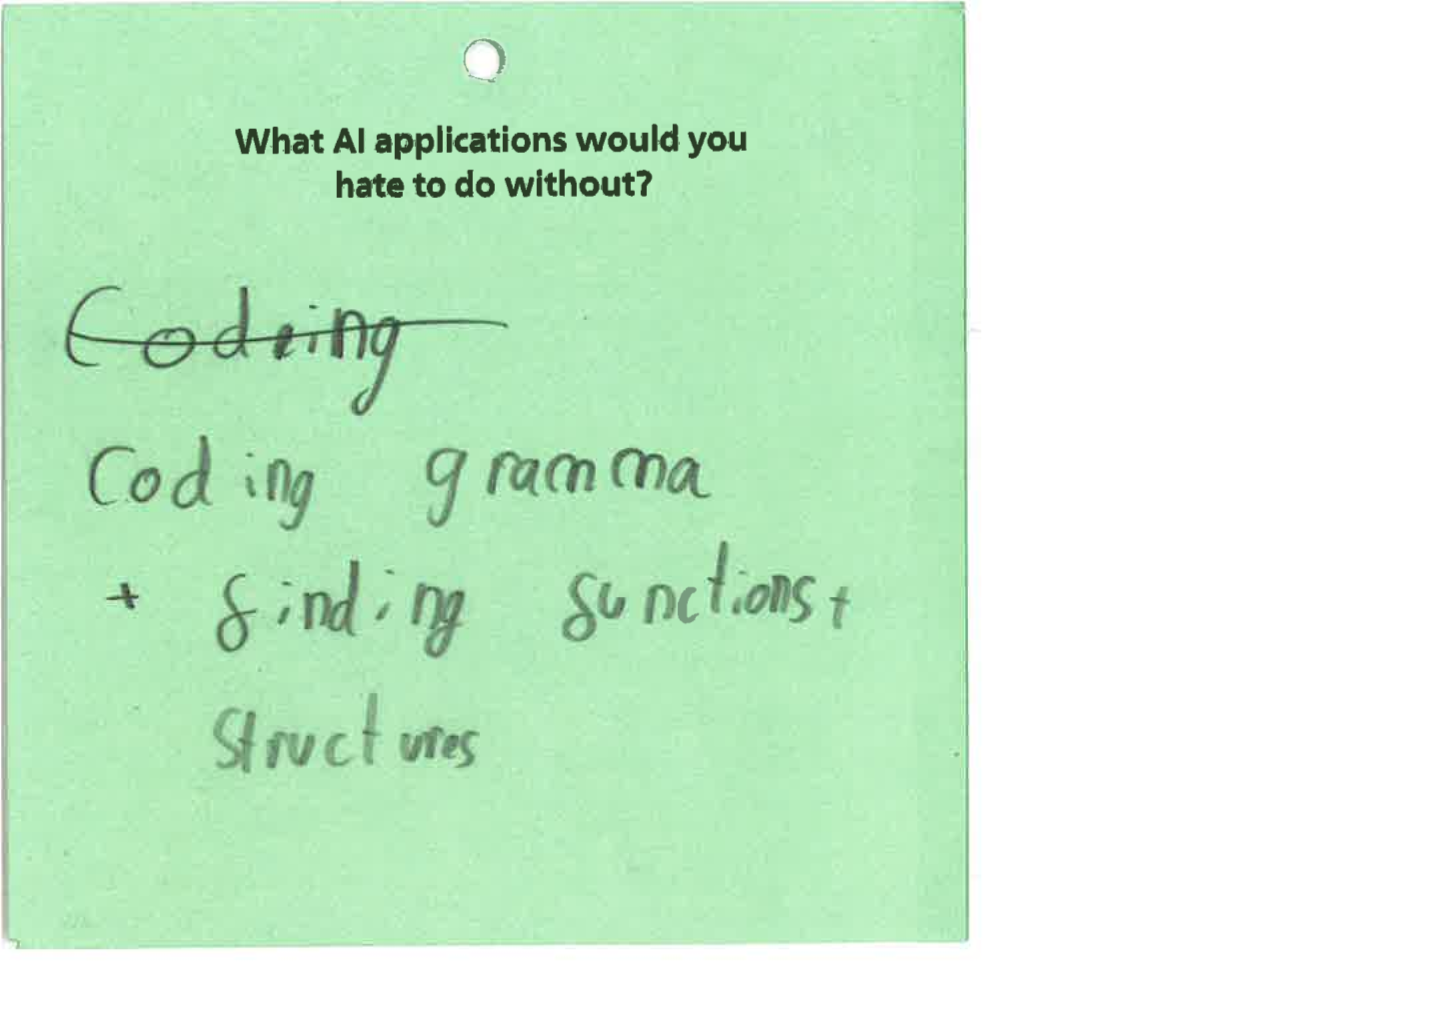 What AI applications would you
hate to do without?
Codeing
Coding gramma
+ finding functions +
structures